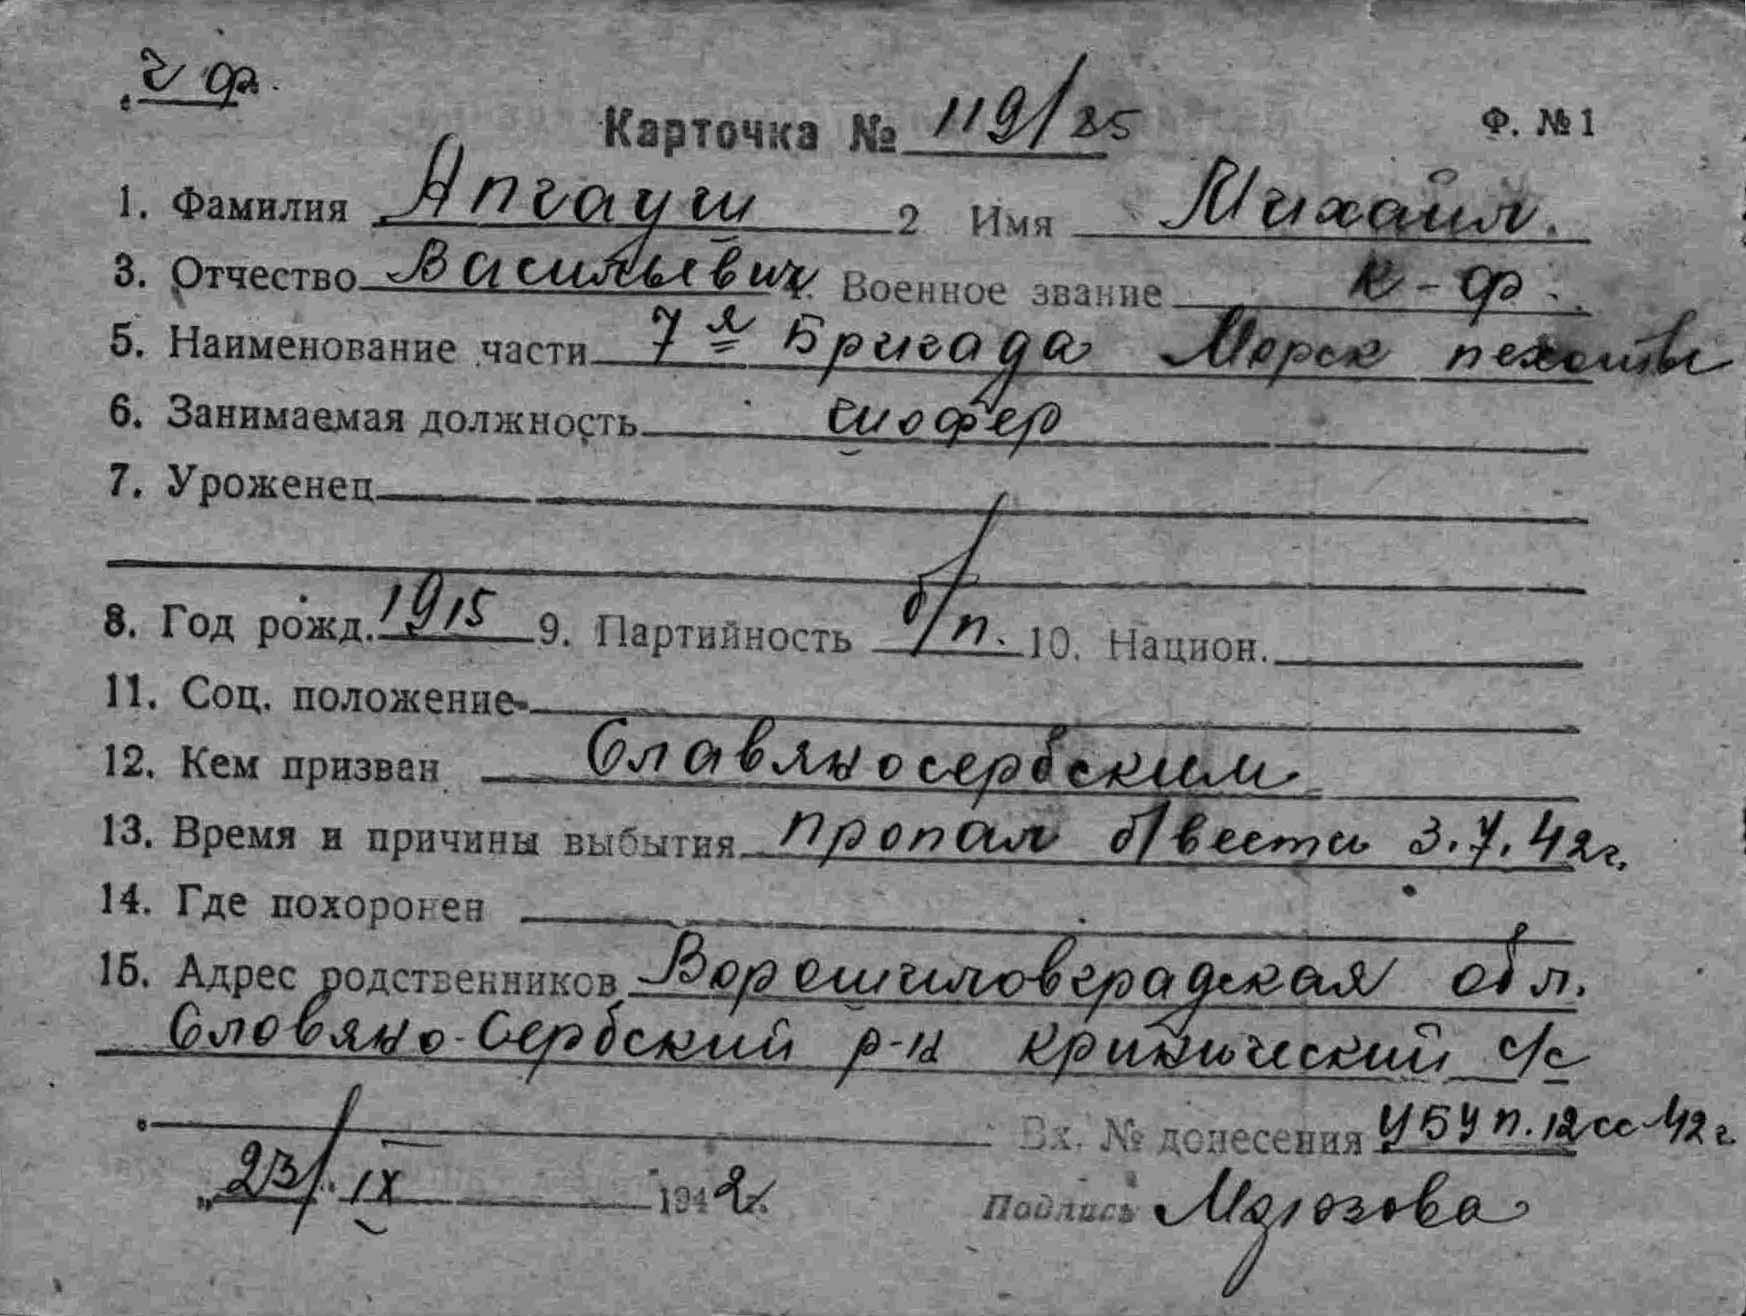 ч ф.
Карточка № 119/85 Ф. № 1
1. Фамилия Апгауш 2 Имя Михаил.
3. Отчество Васильевич 4. Военное звание к-ф.
5. Наименование части 7я Бригада Морск пехоты
6. Занимаемая должность шофер
7. Уроженец
8. Год рожд. 1915 9. Партийность б/п. 10. Национ.
11. Соц. положение
12. Кем призван Славяносербским
13. Время и причины выбытия пропал б/вести 3.7.42г.
14. Где похоронен
15. Адрес родственников Ворошиловградская обл.
Словяно-Сербский р-н Кринический с/с
Вх. № донесения УБУ п. 12сс-42г.
„23/. IX 1942г.
Подпись